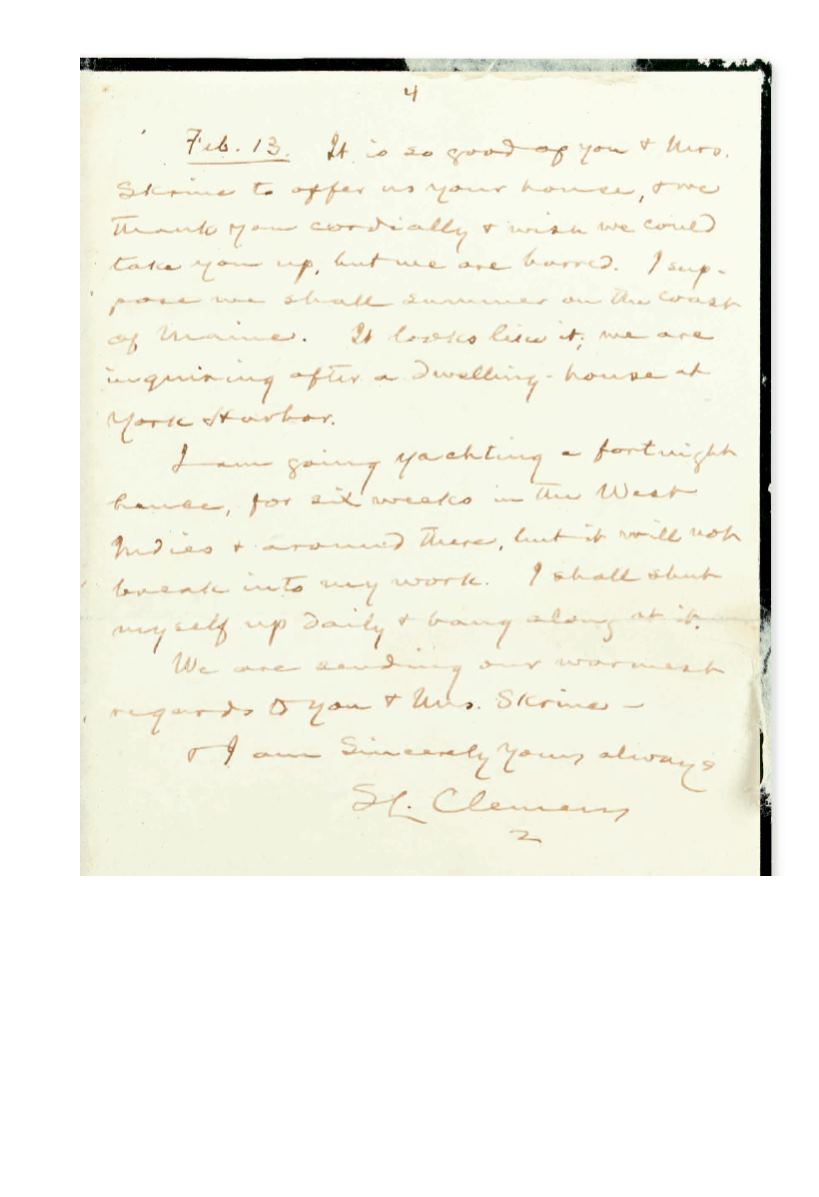 4
Feb. 13. It is so good of you & Mrs.
Skrine to offer us your house, & we
thank you cordially & wish we could
take you up, but we are barred. I sup-
pose we shall summer on the coast
of Maine. It looks like it; we are
inquiring after a dwelling-house at
York Harbor.
I am going yachting a fortnight
hence, for six weeks in the West
Indies & around there, but it will not
break into my work. I shall shut
myself up daily & bang along at it.
We are sending our warmest
regards to you & Mrs. Skrine —
& I am Sincerely Yours always
SL. Clemens
2